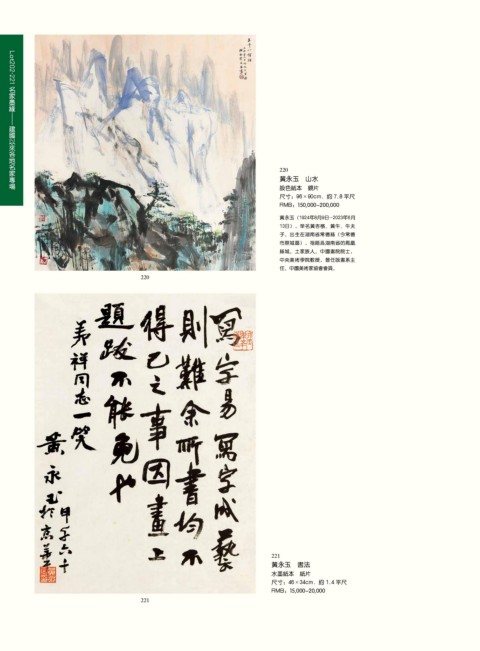 Lot202-221 名家墨緣——建國以來各地名家專場
220
黃永玉 山水
設色紙本 鏡片
尺寸：96×90cm．約 7.8 平尺
RMB：150,000-200,000
黃永玉（1924年8月9日-2023年6月
13日），學名黃永裕，黃牛、牛夫
子，出生在湖南省常德縣（今常德
市鼎城區），祖籍爲湖南省的鳳凰
縣城，土家族人，中國畫院院士，
中央美術學院教授，曾任版畫系主
任、中國美術家協會會員。
220
寫字易寫字成藝
則難余所書均不
得已之事因畫上
題跋不能免也
羑祥同志一笑
黃永玉 甲子六十
於京華
221
221
黃永玉 書法
水墨紙本 紙片
尺寸：46×34cm．約 1.4 平尺
RMB：15,000-20,000